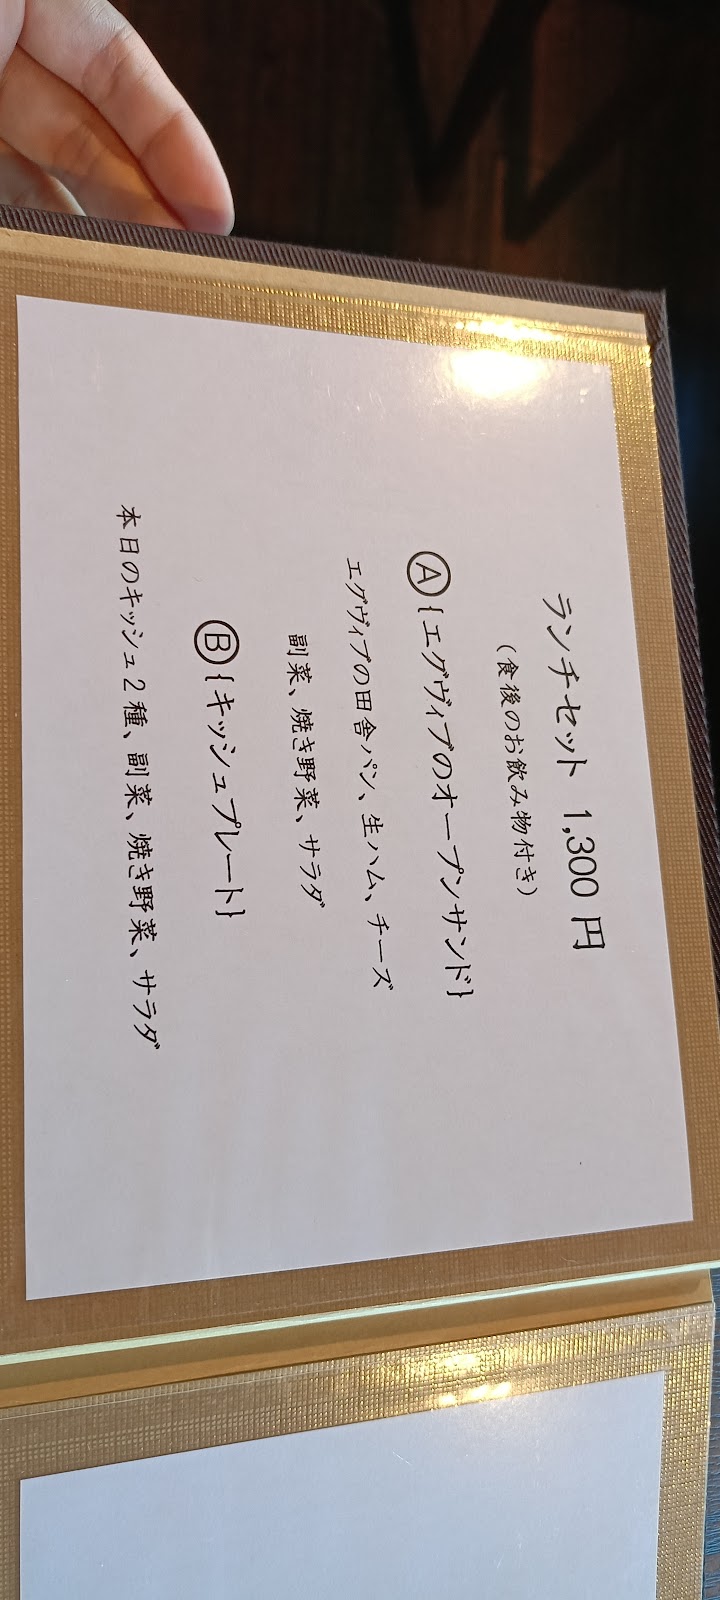 ランチセット 1,300 円
（食後のお飲み物付き）
Ⓐ{エグヴィブのオープンサンド}
エグヴィブの田舎パン、生ハム、チーズ
副菜、焼き野菜、サラダ
Ⓑ{キッシュプレート}
本日のキッシュ2種、副菜、焼き野菜、サラダ